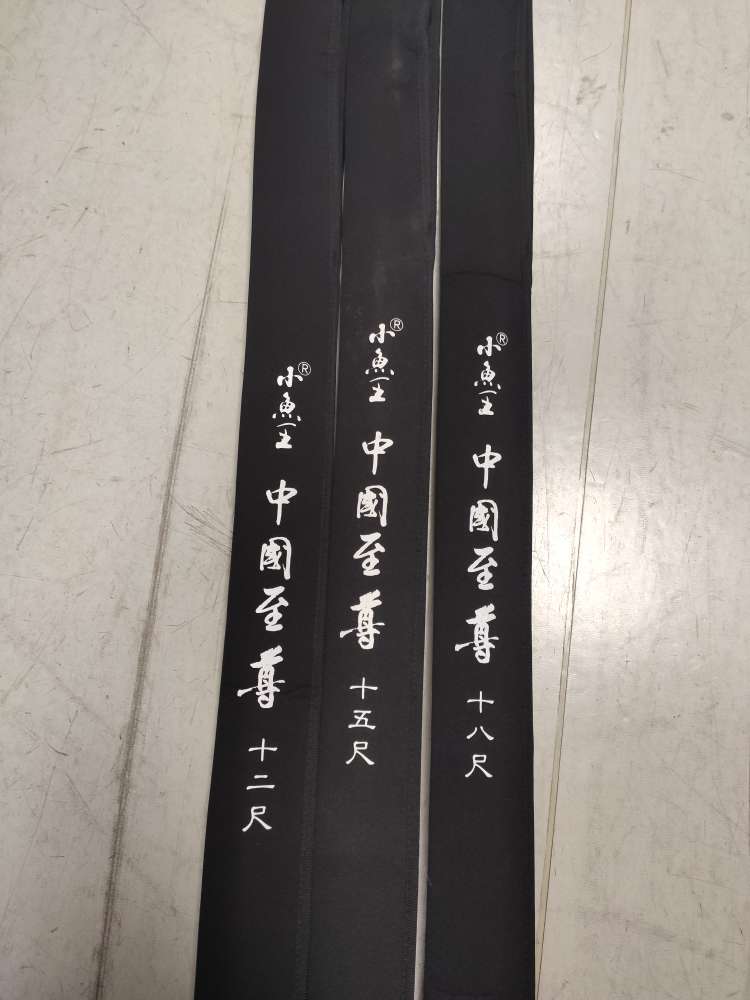 小魚王®
中國至尊
十二尺
小魚王®
中國至尊
十五尺
小魚王®
中國至尊
十八尺